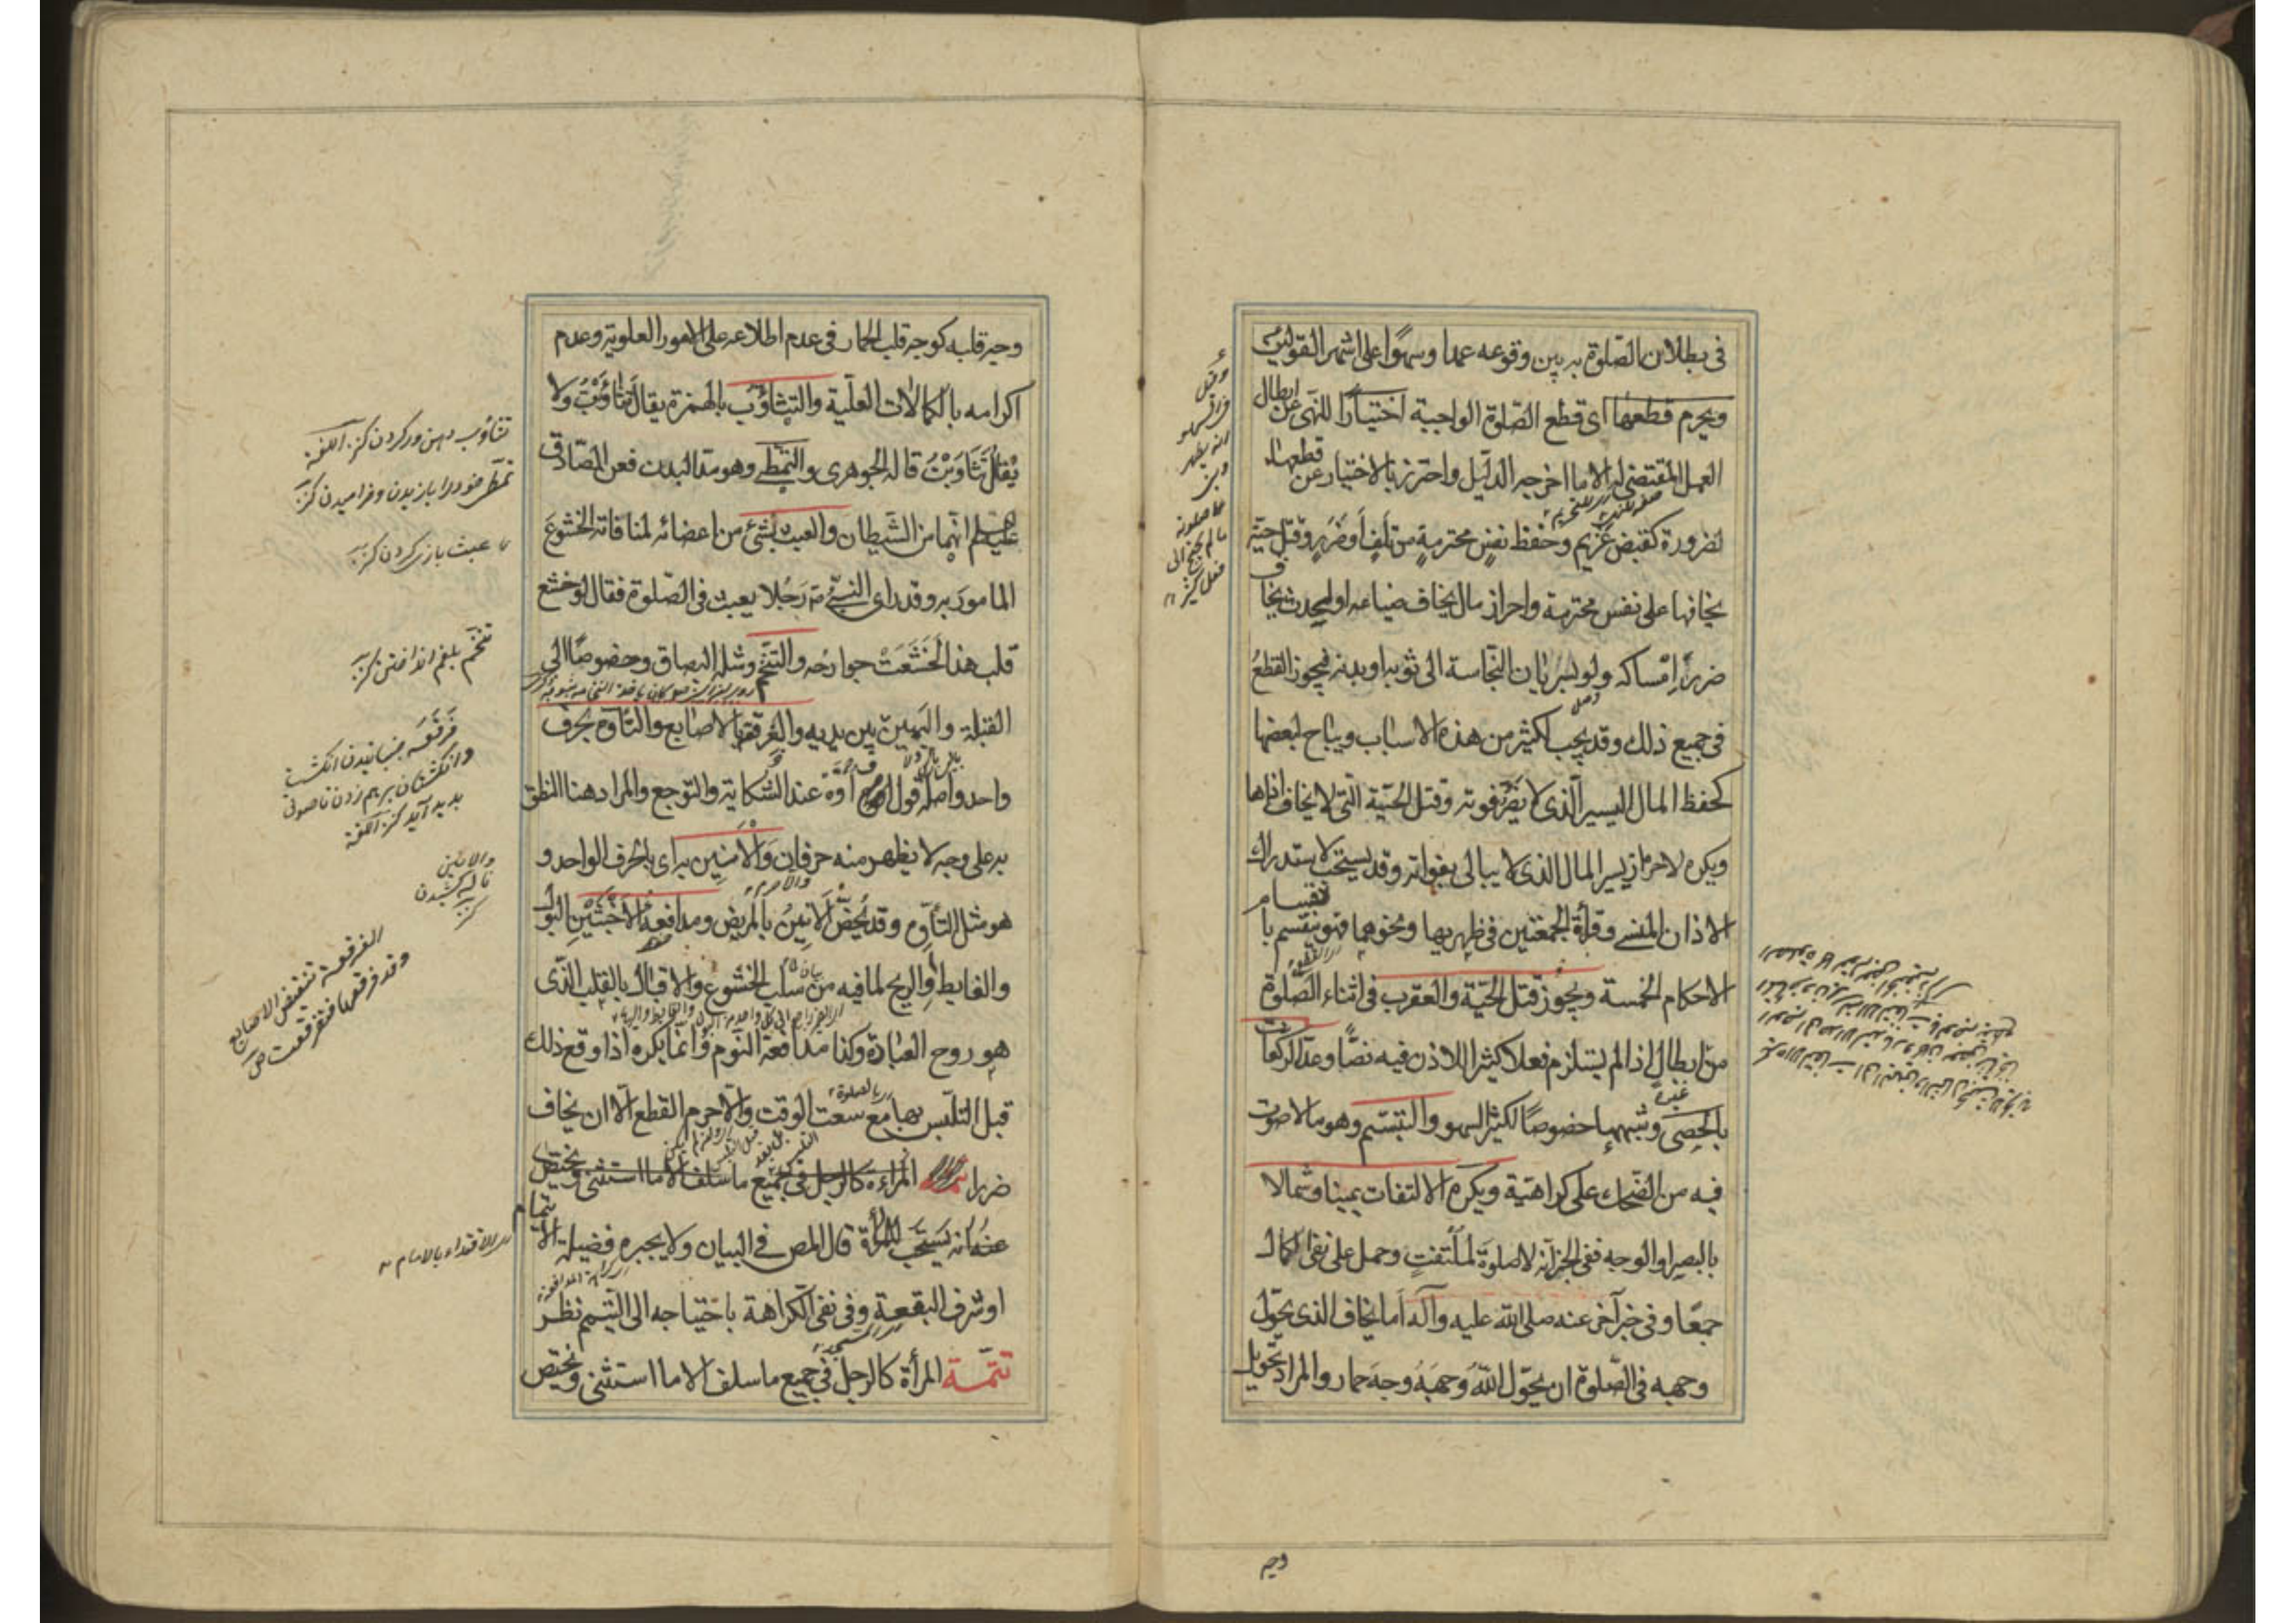 فى بطلان الصّلوة به بين وقوعه عمدا وسهوًا على اشهر القولين
ويحرم قطعها اى قطع الصّلوة الواجبة اختيارًا للنّهى عن ابطال
العمل المقتضى له الا ما اخرجه الدّليل واحترز بالاختيار عن قطعها
لضرورة كقبض غريم وحفظ نفسٍ محترمةٍ من تلفٍ أو ضررٍ وقتل حيّة
يخافها على نفس محترمة واحراز مال يخاف ضياعه او لحدث يخاف
ضررَ إمساكه ولو بسَرَيان النّجاسة الى ثوبه او بدنه فيجوز القطعُ
فى جميع ذلك وقد يجب لكثير من هذه الاسباب ويباح لبعضها
كحفظ المال اليسير الّذى لا يضرّ فوته وقتل الحيّة الّتى لا يخاف اذاها
ويكره لاحراز يسير المال الّذى لا يبالى بفواته وقد يستحبّ لاستدراك
الاذان المنسى وقرأة الجمعتين فى ظهريها ونحوهما فهو ينقسم بانقسام
الاحكام الخمسة ويجوز قتل الحيّة والعقرب فى اثناء الصّلوة
من ابطال اذا لم يستلزم فعلا كثيرا للاذن فيه نصًّا وعدّ الركعات
بالحصى وشبهها خصوصًا لكثير السهو والتبسّم وهو ما لا صوت
فيه من الضّحك على كراهيّة ويكره الالتفات يمينا وشمالا
بالبصر او الوجه ففى الخبر انّه لا صلوة لملتفتٍ وحمل على نفى الكمال
جمعًا وفى خبر آخر عنه صلى اللّه عليه وآله أما يخاف الذى يحوّل
وجهه فى الصّلوة ان يحوّل اللّه وجهَهُ وجهَ حمار والمراد تحويل
وجه
وجه قلبه كوجه قلب الحمار فى عدم اطلاعه على الامور العلوية وعدم
اكرامه بالكمالات العلّية والتثاؤب بالهمزة يقال تثاؤبتُ ولا
يُقالُ تثاوَبْتُ قاله الجوهرى والتمطّى وهو مدّ اليدين فعن الصّادق
عليه السلم انهما من الشّيطان والعبث بشئ من اعضائه لمنافاته الخشوعَ
المامورَ به وقد راى النبىّ ص رجُلا يعبث فى الصّلوة فقال لو خشع
قلب هذا لخشعَتْ جوارحُه والتنخّم ومثله البصاق وخصوصًا الى
القبلة واليمين بين يديه والفرقعة بالاصابع والتأوّه بحرف
واحد واصله قول اوه عند الشكاية والتوجع والمراد هنا النطق
به على وجه لا يظهر منه حرفان والانين به اى بالحرف الواحد و
هو مثل التأوّه وقد يُخصّ الانينُ بالمريض ومدافعةُ الأخبثَيْنِ البول
والغايط والريح لما فيه من سلب الخشوع والاقبال بالقلب الذى
هو روح العبادة وكذا مدافعة النّوم وانما يكره اذا وقع ذلك
قبل التلبّس بها مع سعت الوقت والا حرم القطع الا ان يخاف
ضررا المراءة كالرجل فى جميع ما سلف الا ما استثنى ويختص
عنه انه يستحبّ للمرأة قال المص فى البيان ولا يجبره فضيلة الايتمام
او شرف البقعة وفى نفى الكراهة باحتياجه الى التيمم نظر
تتمّة المرأة كالرجل فى جميع ما سلف الا ما استثنى ويختص
تثاؤب دهن در كردن كنز اللغة
عبث بازى كردن كنز
تنخّم بلغم انداختن كنز
والانين
ناله كشيدن
كنز
الفرقعة تنقيض الاصابع
وقد فرقعها فتفرقعت ص
اى الاقتداء بالامام